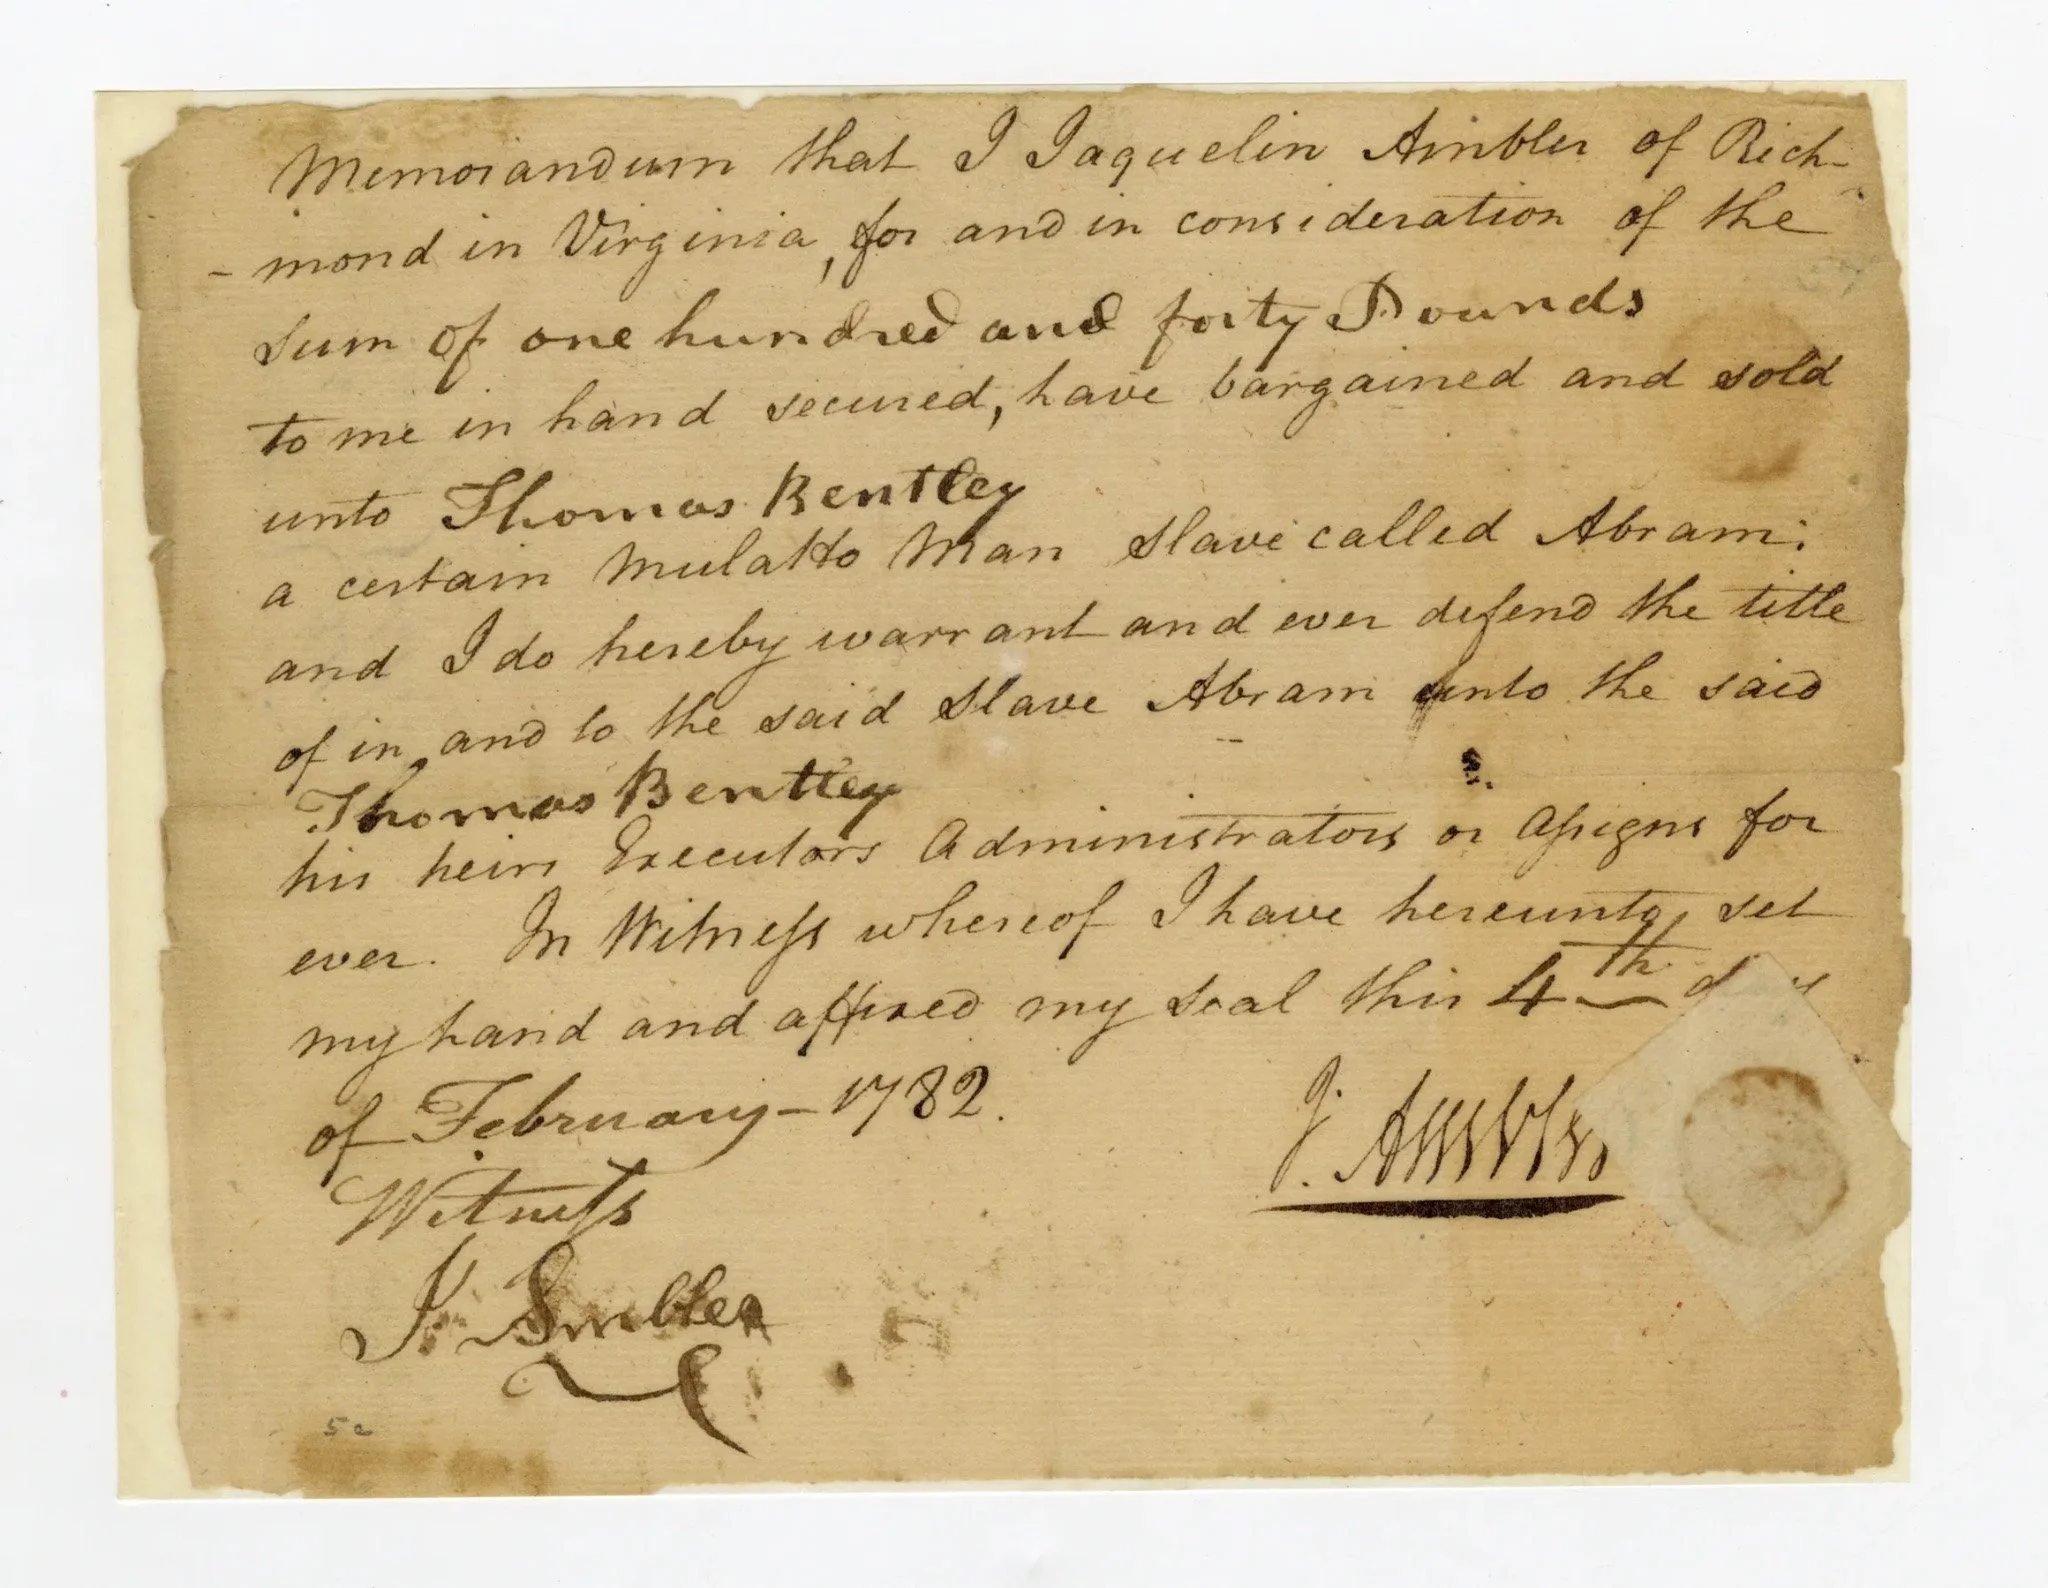 Memorandum that I Jaquelin Ambler of Rich-
- mond in Virginia, for and in consideration of the
sum of one hundred and forty Pounds
to me in hand secured, have bargained and sold
unto Thomas Bentley
a certain Mulatto Man Slave called Abram;
and I do hereby warrant and ever defend the title
of in, and to the said Slave Abram unto the said
Thomas Bentley
his heirs Executors Administrators or Assigns for
ever. In Witness whereof I have hereunto set
my hand and affixed my seal this 4th day
of February - 1782.
J. Ambler
Witness